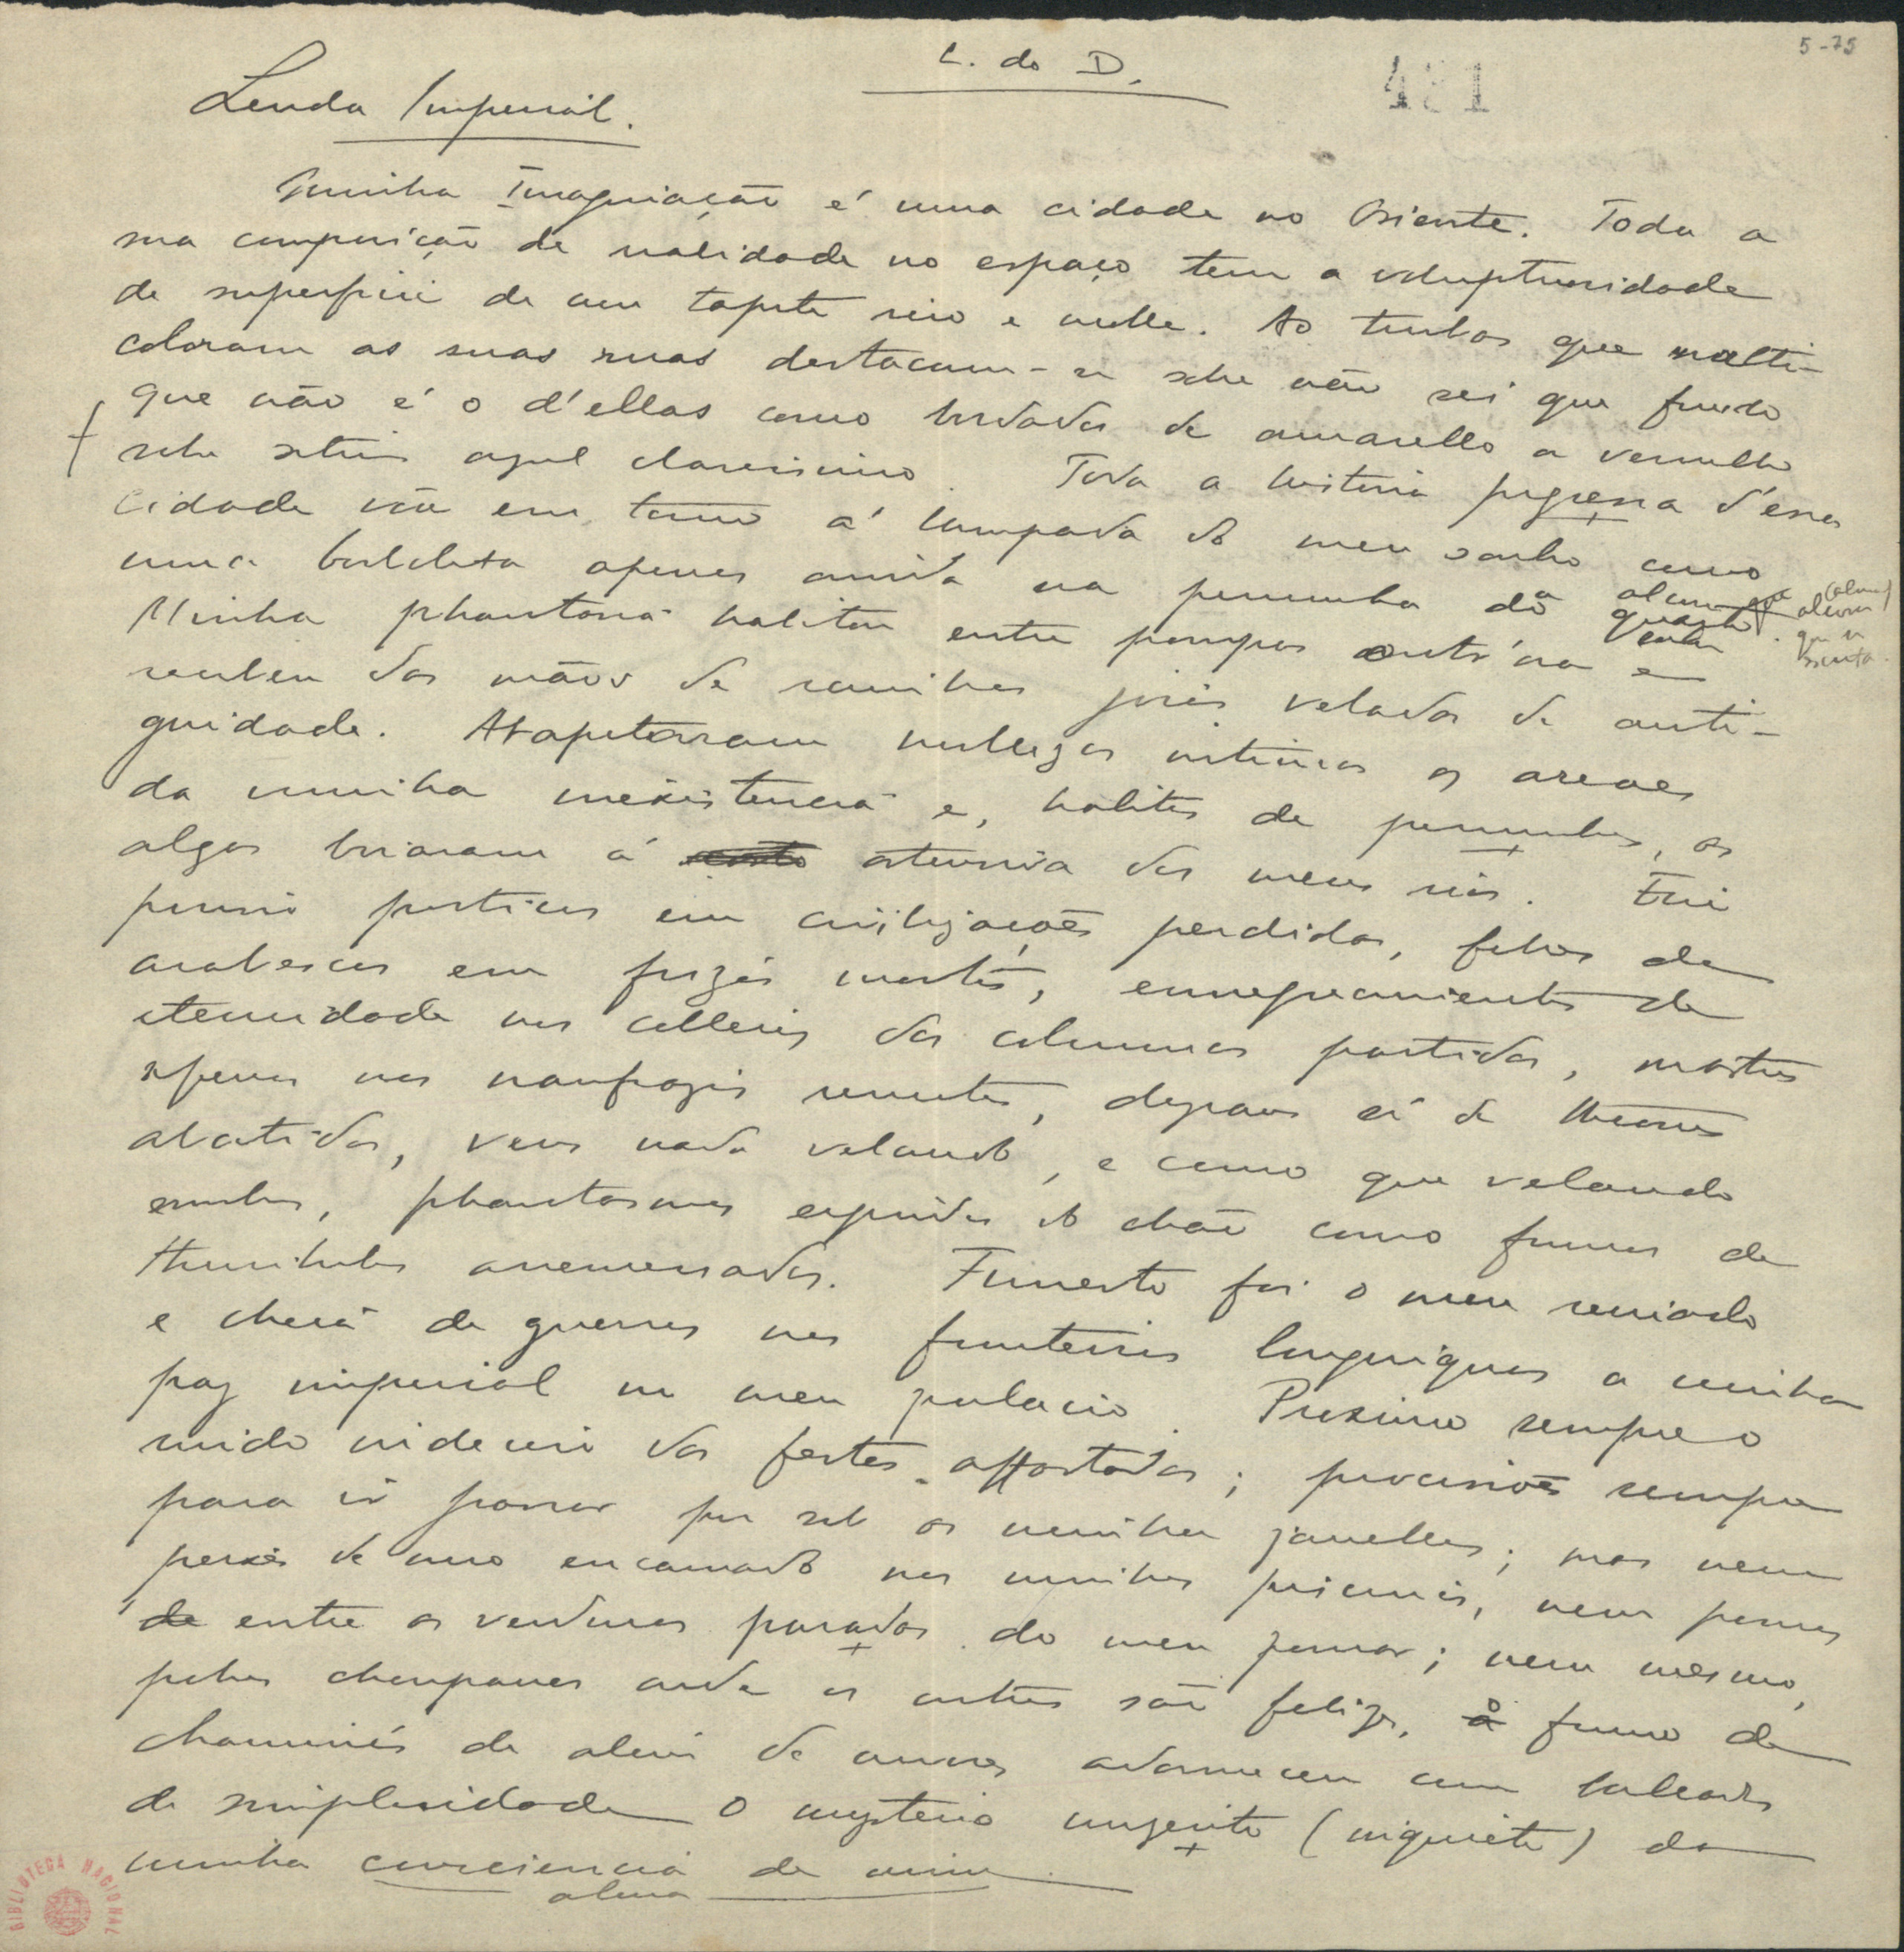 5-75
L. do D.
481
Lenda Imperial.
Minha Imaginação é uma cidade no Oriente. Toda a
sua composição de realidade no espaço tem a voluptuosidade
de superficie de um tapete rico e molle. As tendas que multi-
coloram as suas ruas destacam-se sobre não sei que fundo
que não é o d'ellas como bordados de amarello e vermelho
sobre setim azul clarissimo. Toda a historia pregressa d'essa
cidade vôa em torno á lampada do meu sonho como
uma borboleta apenas ouvida na penumbra do quarto.
Minha phantasia habitou entre pompas outr'ora e
recebeu das mãos de rainhas joias veladas de anti-
guidade. Atapetaram mollezas intimas os areaes
da minha inexistencia e, halitos de penumbra, as
algas boiaram á ostensiva dos meus rios. Fui
porisso porticos em civilizações perdidas, febres de
arabescos em frizos mortos, ennegrecimentos de
eternidade nos colleios das columnas partidas, mastros
apenas nos naufragios remotos, degraus só de thronos
abatidos, veus nada velando, e como que velando
sombras, phantasmas erguidos do chão como fumos de
thuribulos arremessados. Funesto foi o meu reinado
e cheia de guerras nas fronteiras longinquas a minha
paz imperial no meu palacio. Proximo sempre o
ruido indeciso das festas affastadas; procissões sempre
para ir passar por sob as minhas janellas; mas nem
peixes de ouro encarnado nas minhas piscinas, nem pomos
de entre as verduras paradas do meu pomar; nem mesmo,
pobres choupanas onde os outros são felizes, o fumo de
chaminés de alem de arvores adormeceu com balladas
de simplicidade o mysterio ungente (inquieto) da
minha consciencia de mim.
alma